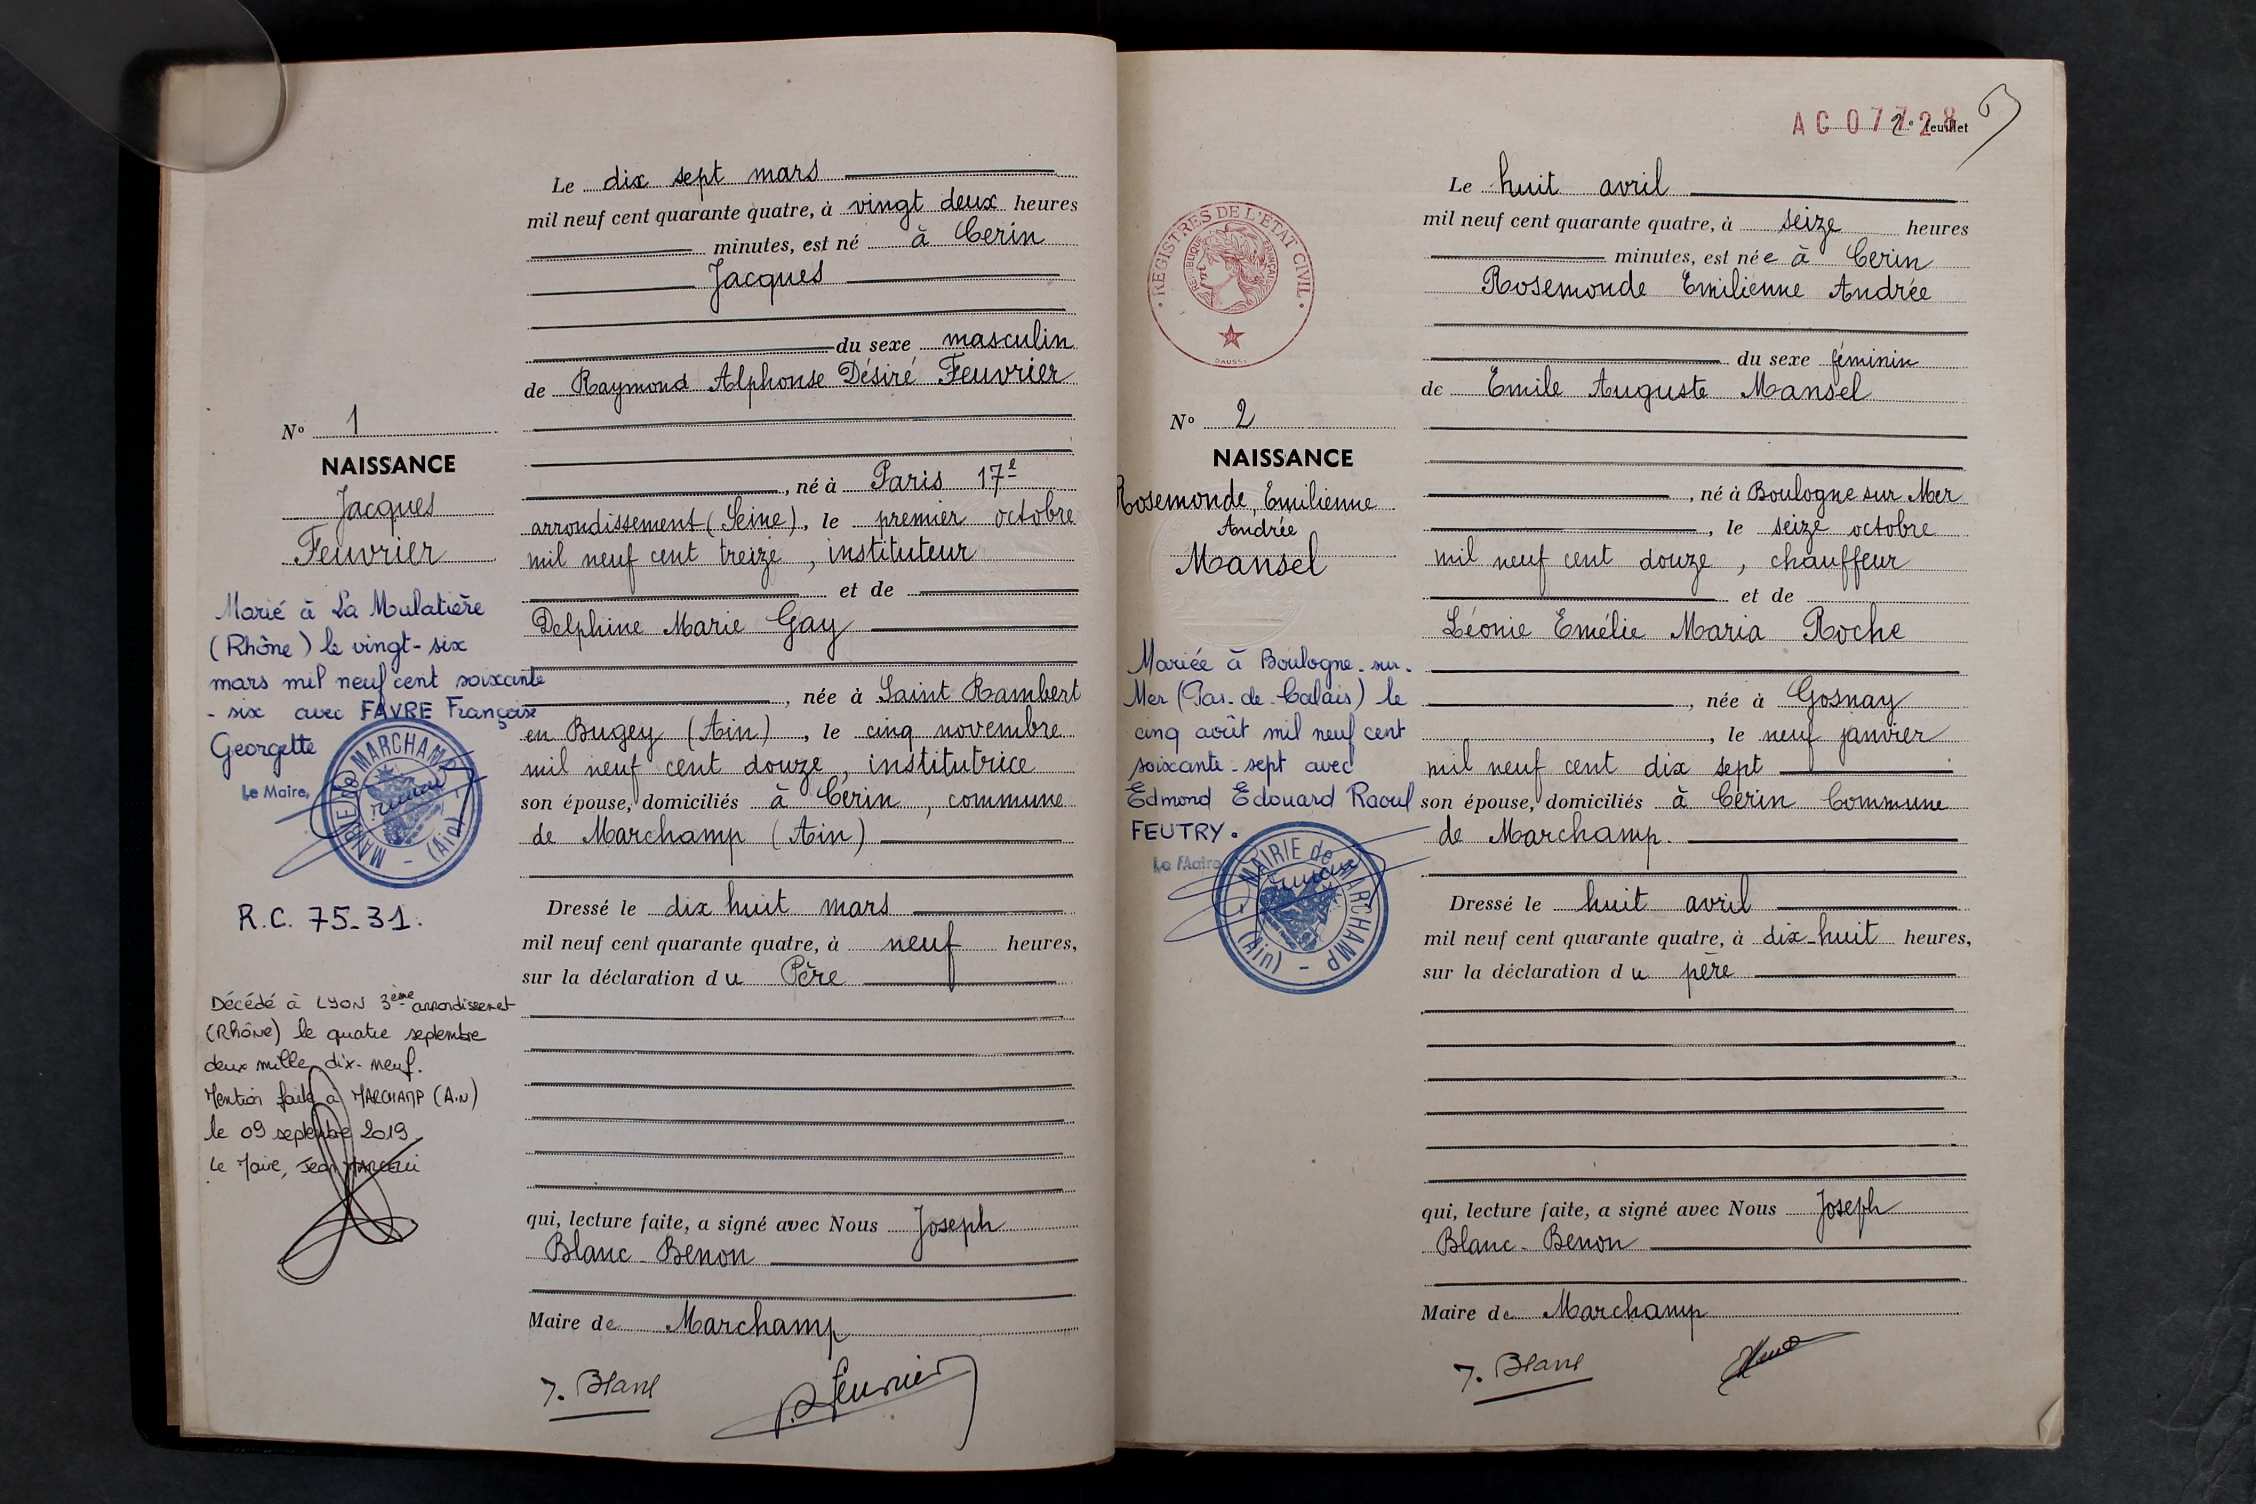 Le dix sept mars
mil neuf cent quarante quatre, à vingt deux heures
minutes, est né à Cerin
Jacques
du sexe masculin
de Raymond Alphonse Désiré Feuvrier
, né à Paris 17e
arrondissement (Seine), le premier octobre
mil neuf cent treize, instituteur
et de
Delphine Marie Gay
, née à Saint Rambert
en Bugey (Ain), le cinq novembre
mil neuf cent douze, institutrice
son épouse, domiciliés à Cerin, commune
de Marchamp (Ain)
Dressé le dix huit mars
mil neuf cent quarante quatre, à neuf heures,
sur la déclaration du Père
qui, lecture faite, a signé avec Nous Joseph
Blanc-Benon
Maire de Marchamp
J. Blanc
Feuvrier
No 1
NAISSANCE
Jacques
Feuvrier
Marié à La Mulatière
(Rhône) le vingt-six
mars mil neuf cent soixante
-six avec FAVRE Françoise
Georgette
Le Maire,
MAIRIE de MARCHAMP - (Ain)
R.C. 75-31.
Décédé à LYON 3ème arrondissement
(Rhône) le quatre septembre
deux mille dix-neuf.
Mention faite à MARCHAMP (Ain)
le 09 septembre 2019
Le Maire, Jean
AC 07728
2e feuillet
REGISTRES DE L'ETAT CIVIL
REPUBLIQUE FRANÇAISE
Le huit avril
mil neuf cent quarante quatre, à seize heures
minutes, est née à Cerin
Rosemonde Emilienne Andrée
du sexe féminin
de Emile Auguste Mansel
, né à Boulogne sur Mer
, le seize octobre
mil neuf cent douze, chauffeur
et de
Léonie Emélie Maria Roche
, née à Gosnay
, le neuf janvier
mil neuf cent dix sept
son épouse, domiciliés à Cerin Commune
de Marchamp.
Dressé le huit avril
mil neuf cent quarante quatre, à dix-huit heures,
sur la déclaration du père
qui, lecture faite, a signé avec Nous Joseph
Blanc-Benon
Maire de Marchamp
J. Blanc
No 2
NAISSANCE
Rosemonde, Emilienne
Andrée
Mansel
Mariée à Boulogne-sur-
Mer (Pas-de-Calais) le
cinq août mil neuf cent
soixante-sept avec
Edmond Edouard Raoul
FEUTRY.
Le Maire
MAIRIE de MARCHAMP - (Ain)